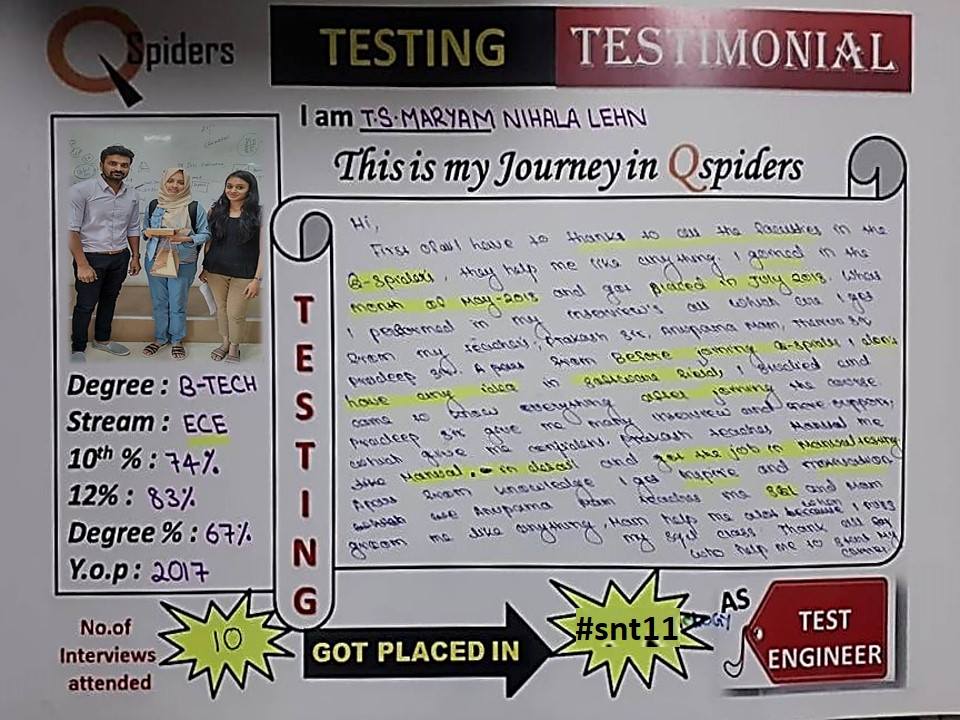 QSpiders
TESTING TESTIMONIAL
I am T.S. MARYAM NIHALA LEHN
This is my Journey in Qspiders
Hi,
First of all I have to thanks to all the faculties in the
Q-Spiders, they help me like anything. I joined in the
month of May-2018 and got placed in July 2018, what
I performed in my interview's all which are I get
from my teachers, Prakash sir, Anupama Mam,
Pradeep sir. A part from Before joining Q-spider I don't
have any idea in software field, I studied and
came to know everything after joining the course
Pradeep sir give me many interview and more support,
which give me confident, Prakash teaches Manual me
like Manual. in detail and got the job in Manual testing
Apart from knowledge I get inspire and motivation
Anupama Mam teaches me SQL and Mam
groom me like anything, Mam help me alot because when I puts
my Sql class. Thank all for
who help me to start my
career
TESTING
Degree : B-TECH
Stream : ECE
10th % : 74%
12% : 83%
Degree % : 67%
Y.o.p : 2017
No.of
Interviews
attended
10
GOT PLACED IN
#snt11
AS
TEST
ENGINEER